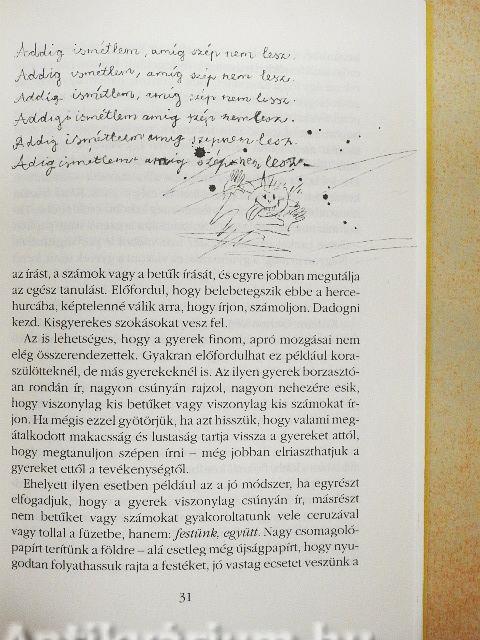 Addig ismétlem, amíg szép nem lesz.
Addig ismétlem, amíg szép nem lesz.
Addíg ismétlem, amíg szép nem lessz.
Addigo ismétlem amíg szép nemlesz.
Addig ismételem amig szepnem lesz.
Adig ismétlemo amig szep nem lesz
az írást, a számok vagy a betűk írását, és egyre jobban megutálja
az egész tanulást. Előfordul, hogy belebetegszik ebbe a herce-
hurcába, képtelenné válik arra, hogy írjon, számoljon. Dadogni
kezd. Kisgyerekes szokásokat vesz fel.
Az is lehetséges, hogy a gyerek finom, apró mozgásai nem
elég összerendezettek. Gyakran előfordulhat ez például kora-
szülötteknél, de más gyerekeknél is. Az ilyen gyerek borzasztó-
an rondán ír, nagyon csúnyán rajzol, nagyon nehezére esik,
hogy viszonylag kis betűket vagy viszonylag kis számokat ír-
jon. Ha mégis ezzel gyötörjük, ha azt hisszük, hogy valami meg-
átalkodott makacsság és lustaság tartja vissza a gyereket attól,
hogy megtanuljon szépen írni – még jobban elriaszthatjuk a
gyereket ettől a tevékenységtől.
Ehelyett ilyen esetben például az a jó módszer, ha egyrészt
elfogadjuk, hogy a gyerek viszonylag csúnyán ír, másrészt
nem betűket vagy számokat gyakoroltatunk vele ceruzával
vagy tollal a füzetbe, hanem: festünk, együtt. Nagy csomagoló-
papírt terítünk a földre – alá esetleg még újságpapírt, hogy nyu-
godtan folyathassuk rajta a festéket, jó vastag ecsetet veszünk a
31
Antikvárium.hu